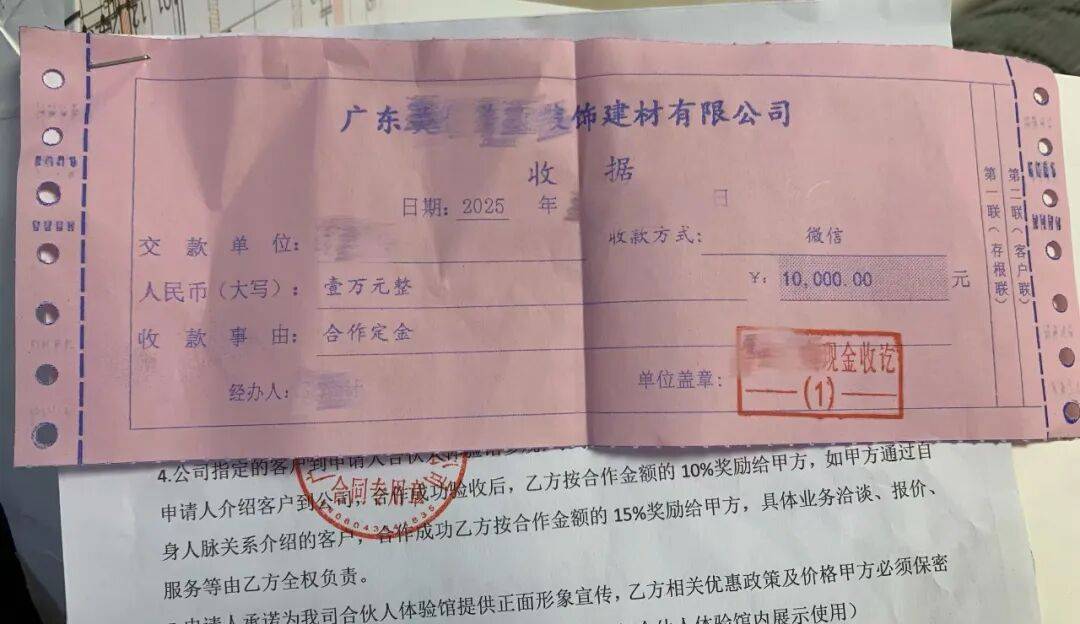 广东 饰建材有限公司
收 据
日期: 2025 年 日
交 款 单 位:
收款方式: 微信
人民币(大写): 壹万元整
¥: 10,000.00 元
收 款 事 由: 合作定金
经办人:
单位盖章:
现金收讫
(1)
第一联(存根联)
第二联(客户联)
4.公司指定的客户到申请人合伙人体验馆
申请人介绍客户到公司,合作成功验收后,乙方按合作金额的 10%奖励给甲方,如甲方通过自
身人脉关系介绍的客户,合作成功乙方按合作金额的 15%奖励给甲方,具体业务洽谈、报价、
服务等由乙方全权负责。
申请人承诺为我司合伙人体验馆提供正面形象宣传,乙方相关优惠政策及价格甲方必须保密
合伙人体验馆内展示使用)
合同专用章